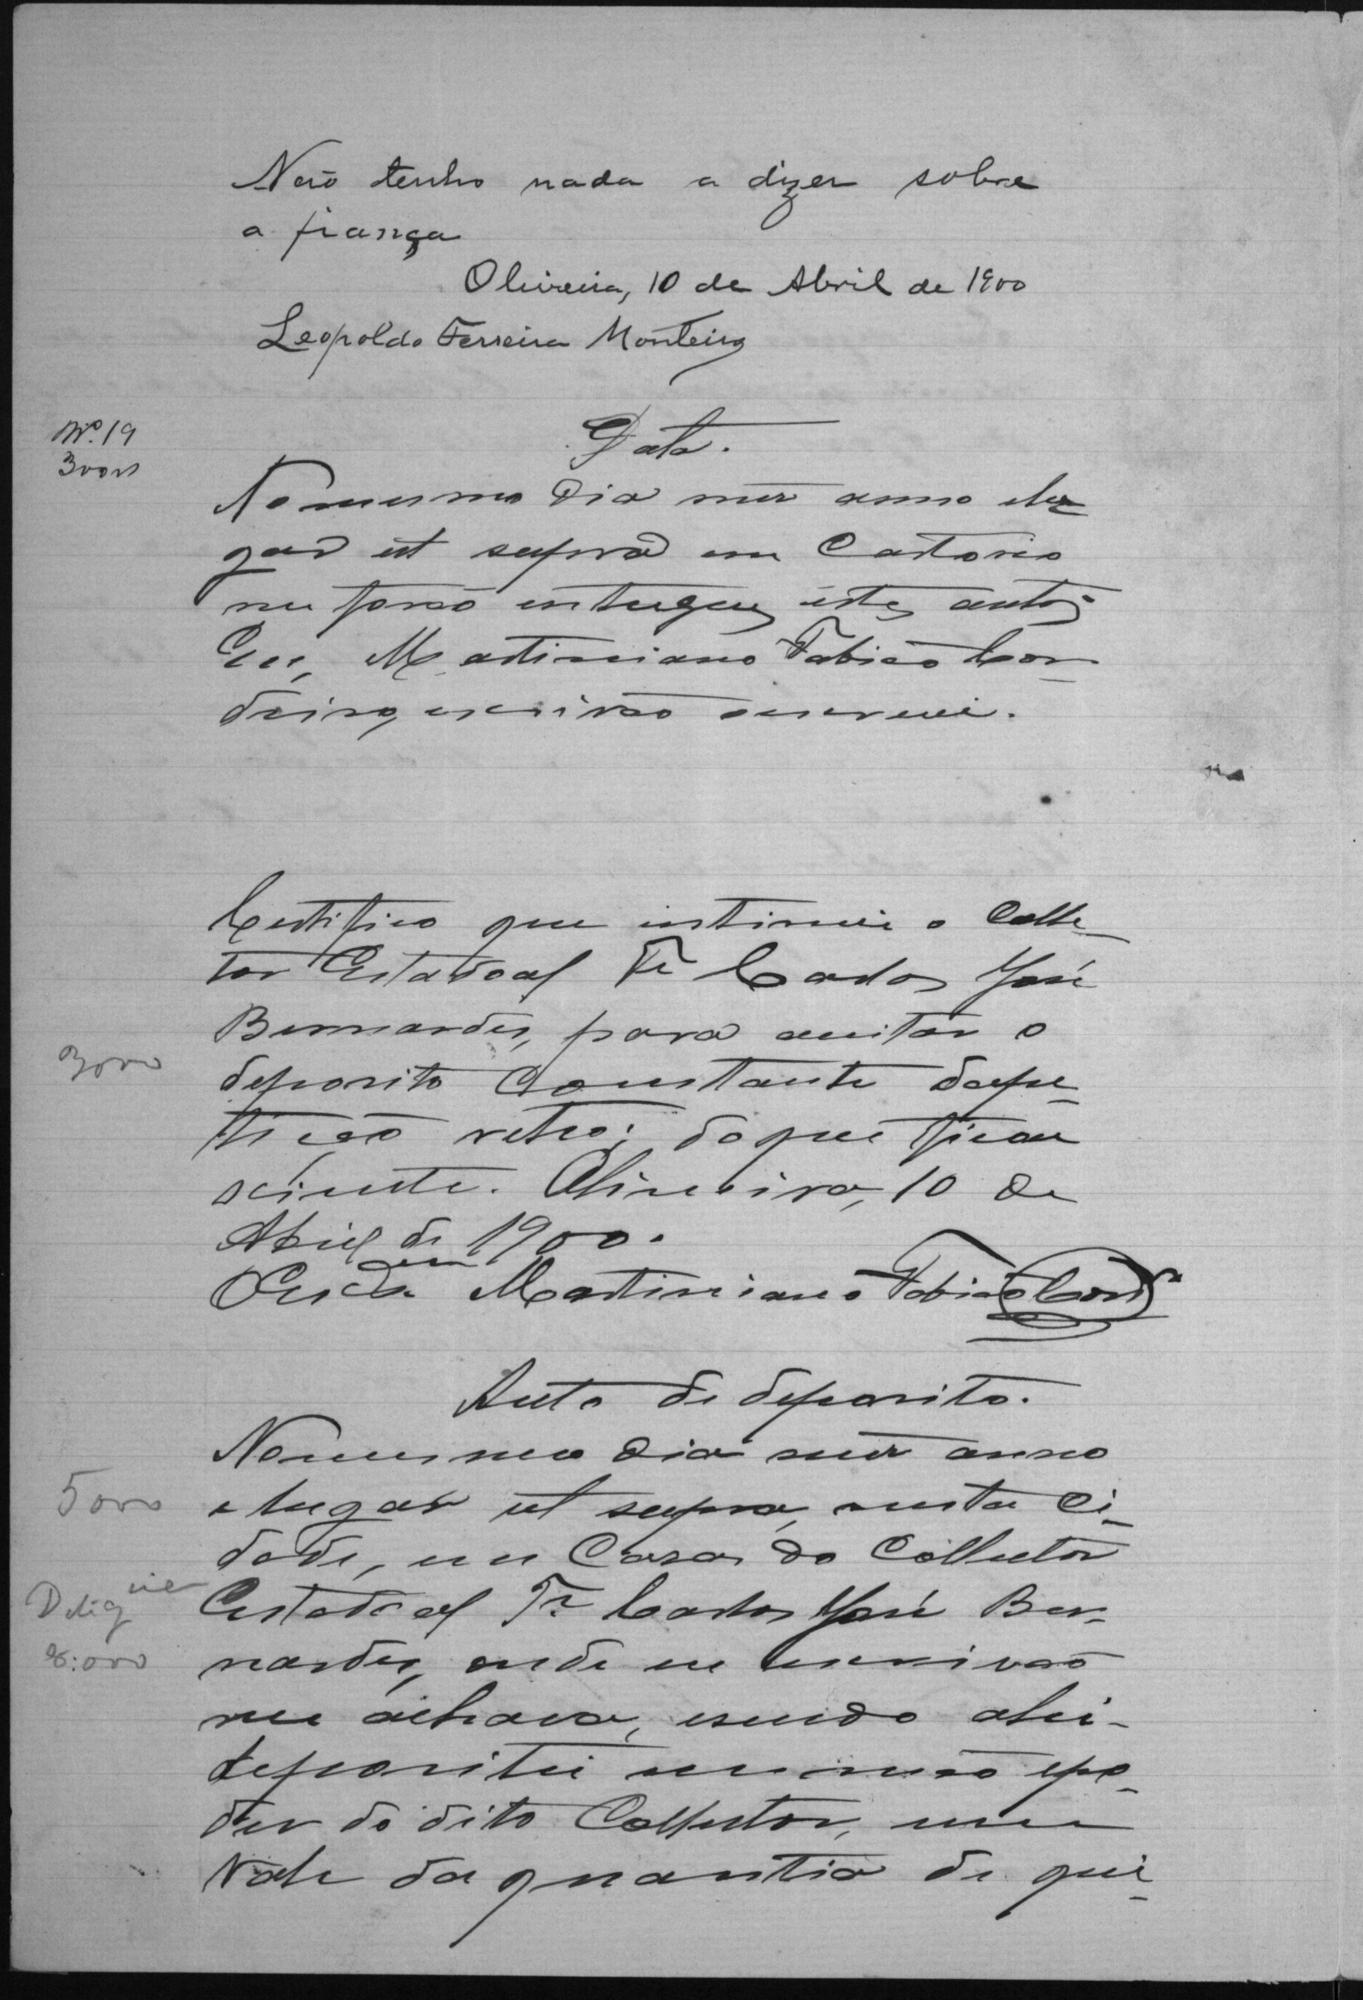 Não tenho nada a dizer sobre
a fiança
Oliveira, 10 de Abril de 1900
Leopoldo Ferreira Monteiro
Nº. 19
300rs
Data.
No mesmo dia mez anno e lu
gar ut supra em Cartorio
me forão entregues estes autos.
Eu, Martiniano Fabião Cor-
deiro, escrivão escrevi.
Certifico que intimei o Colle-
tor Estadoal Te Carlos José
Bernardes, para aceitar o
3000
deposito Constante da pe-
tição retro; do que ficou
sciente. Oliveira, 10 de
Abril de 1900.
Martiniano Fabião Cord
Auto de deposito.
No mesmo dia mez anno
5000
e lugar ut supra, nesta Ci-
dade, em Casa do Collector
Estadoal Te Carlos José Ber-
Deligcia
8:000
nardes, onde eu escrivão
me achava, e sendo ahi
depositei em mão e po-
der do dito Collector, um
Vale da quantia de qui-